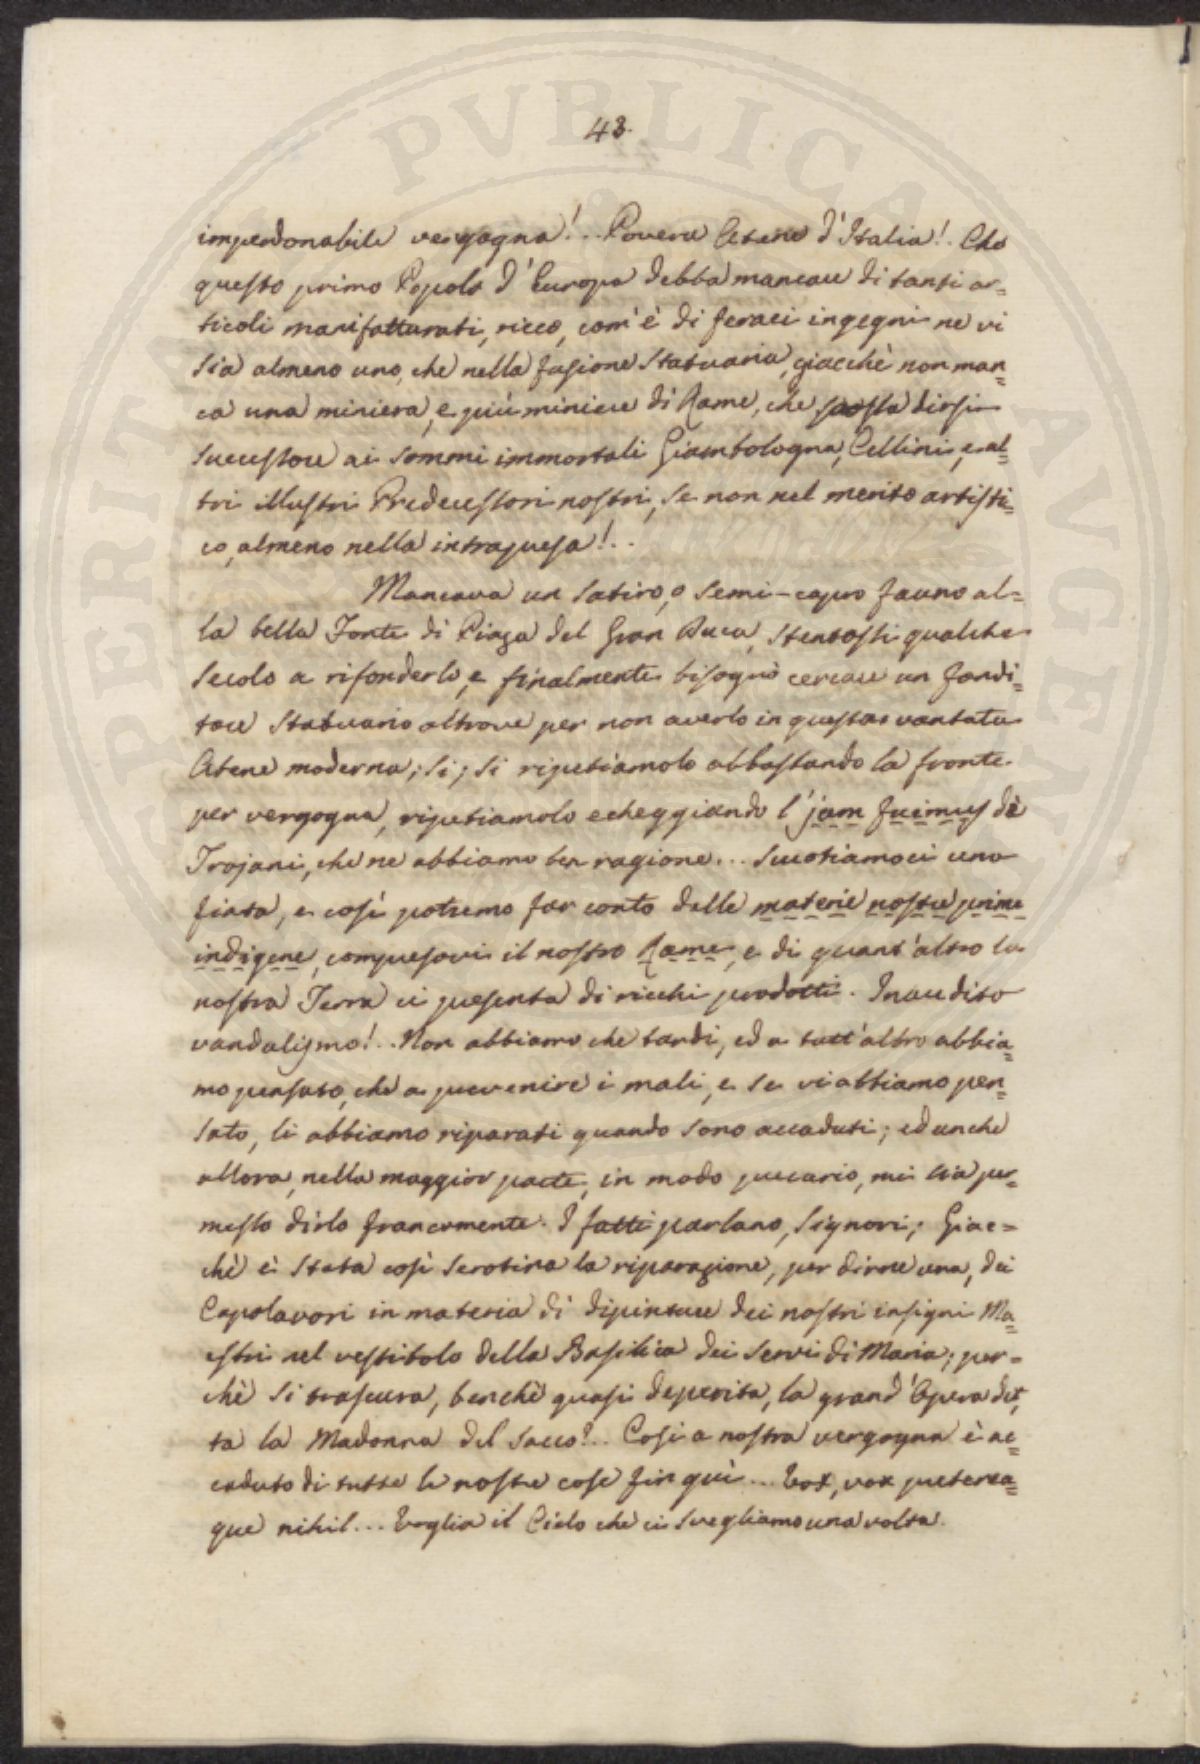 43.
imperdonabile vergogna!.. Povera Atene d'Italia!. Che
questo primo Popolo d'Europa debba mancare di tanti ar=
ticoli manifatturati, ricco, com'è di feraci ingegni ne vi
sia almeno uno, che nella fusione Statuaria, giacchè non man=
ca una miniera, e più miniere di Rame, che possa dirsi
successore ai sommi immortali Giambologna, Cellini, e al=
tri illustri Predecessori nostri, se non nel merito artisti=
co, almeno nella intrapresa!..
Mancava un Satiro, o semi-capro fauno al=
la bella Fonte di Piazza del Gran Duca, stentossi qualche
secolo a rifonderlo, e finalmente bisognò cercare un fondi=
tore Statuario altrove per non averlo in questa vantata
Atene moderna; si; si ripetiamolo abbassando la fronte
per vergogna, ripetiamolo echeggiando l'jam fuimus dè
Trojani, che ne abbiamo ben ragione... Scuotiamoci una
fiata, e così potremo far conto delle materie nostre prime
indigene, compresovi il nostro Rame, e di quant'altro la
nostra Terra ci presenta di ricchi prodotti. Inaudito
vandalismo!.. Non abbiamo che tardi, ed a tutt'altro abbia=
mo pensato, che a prevenire i mali, e se vi abbiamo pen=
sato, li abbiamo riparati quando sono accaduti; ed anche
allora, nella maggior parte, in modo precario, mi sia per=
messo dirlo francamente. I fatti parlano, Signori; Giac=
chè è stata così serotina la riparazione, per dirne una, dei
Capolavori in materia di dipinture dei nostri insigni Ma=
estri nel vestibolo della Basilica dei Servi di Maria; per=
chè si trascura, benchè quasi deperita, la grand'Opera det=
ta la Madonna del Sacco?.. Così a nostra vergogna è ac=
caduto di tutte le nostre cose fin quì... Vox, vox preterea=
que nihil... Voglia il Cielo che ci svegliamo una volta.
PERITAS PVBLICA AVGENT